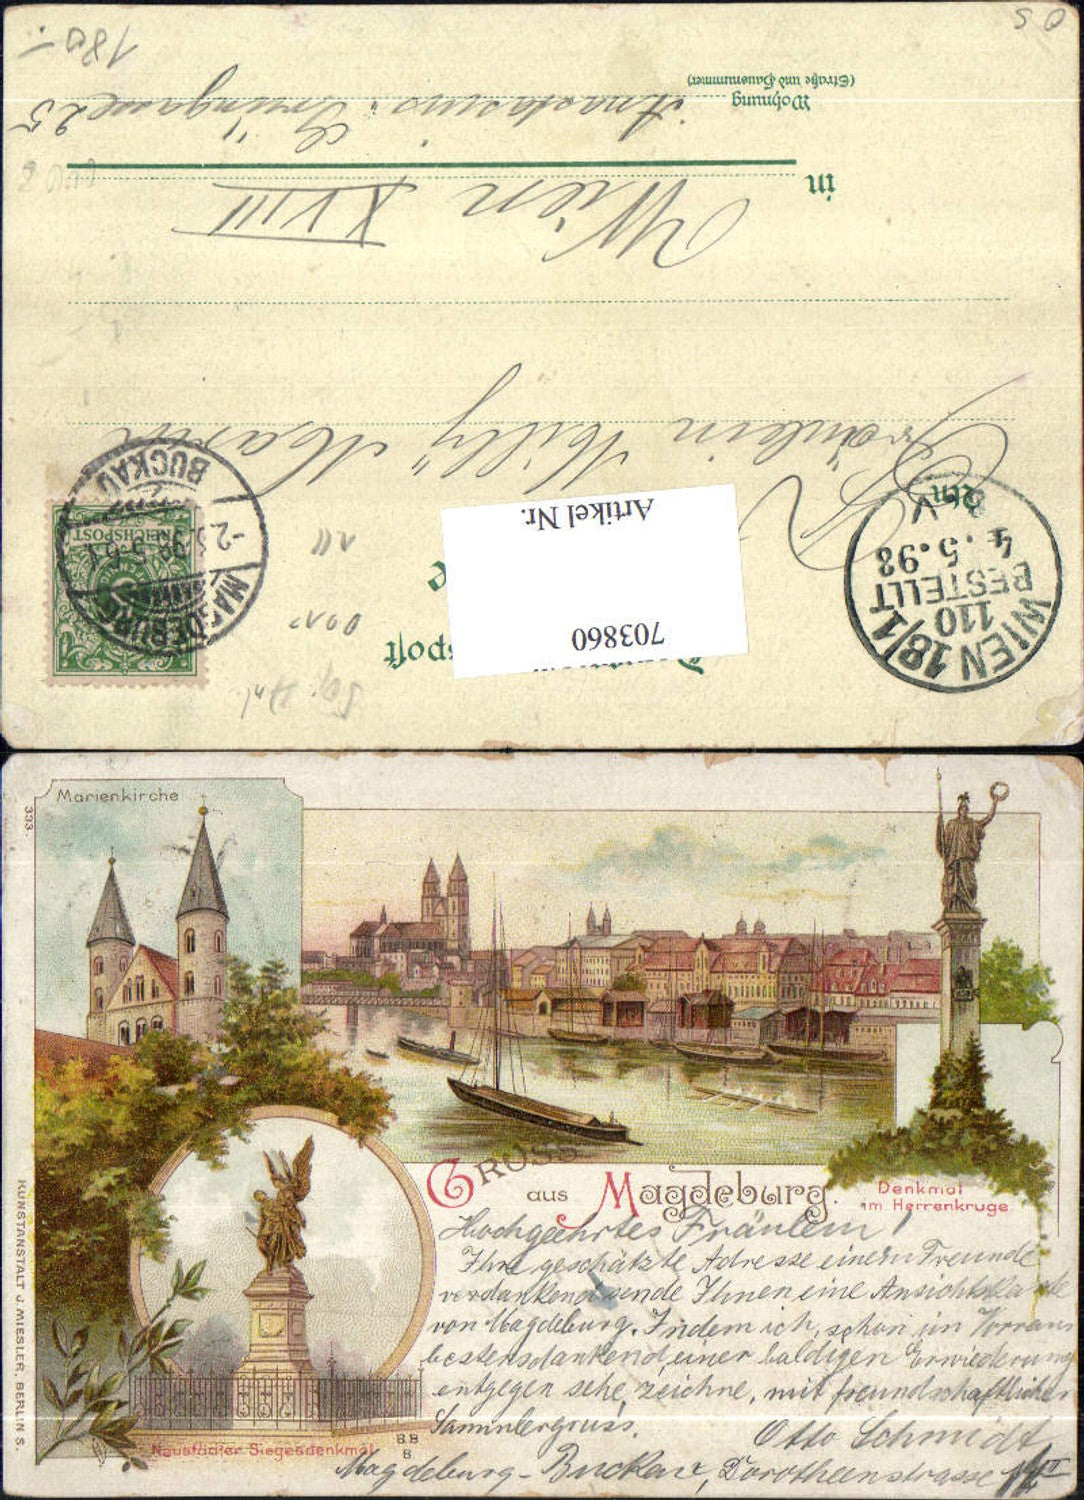 Deutsche Reichspost
Artikel Nr.
703860
REICHSPOST
5
MAGDEBURG
-2.5.98.5-6N.
BUCKAU
WIEN 18/1
110
BESTELLT
4.5.98
V
Fräulein Milly
in
Wien XVIII
Wohnung
(Straße und Hausnummer)
Anastasius-Grüngasse 25
180.-
333.
Marienkirche
Gross
aus Magdeburg.
Denkmal
im Herrenkruge
Neustädter Siegesdenkmal
BB
B
KUNSTANSTALT J. MIESLER, BERLIN S.
Hochgeehrtes Fräulein!
Ihre geschätzte Adresse einem Freunde
verdankend sende Ihnen eine Ansichtskarte
von Magdeburg. Indem ich, schon im Voraus
bestens dankend, einer baldigen Erwiederung
entgegen sehe, zeichne, mit freundschaftlichen
Sammlergruss.
Otto Schmidt
Magdeburg-Buckau, Dorotheenstrasse